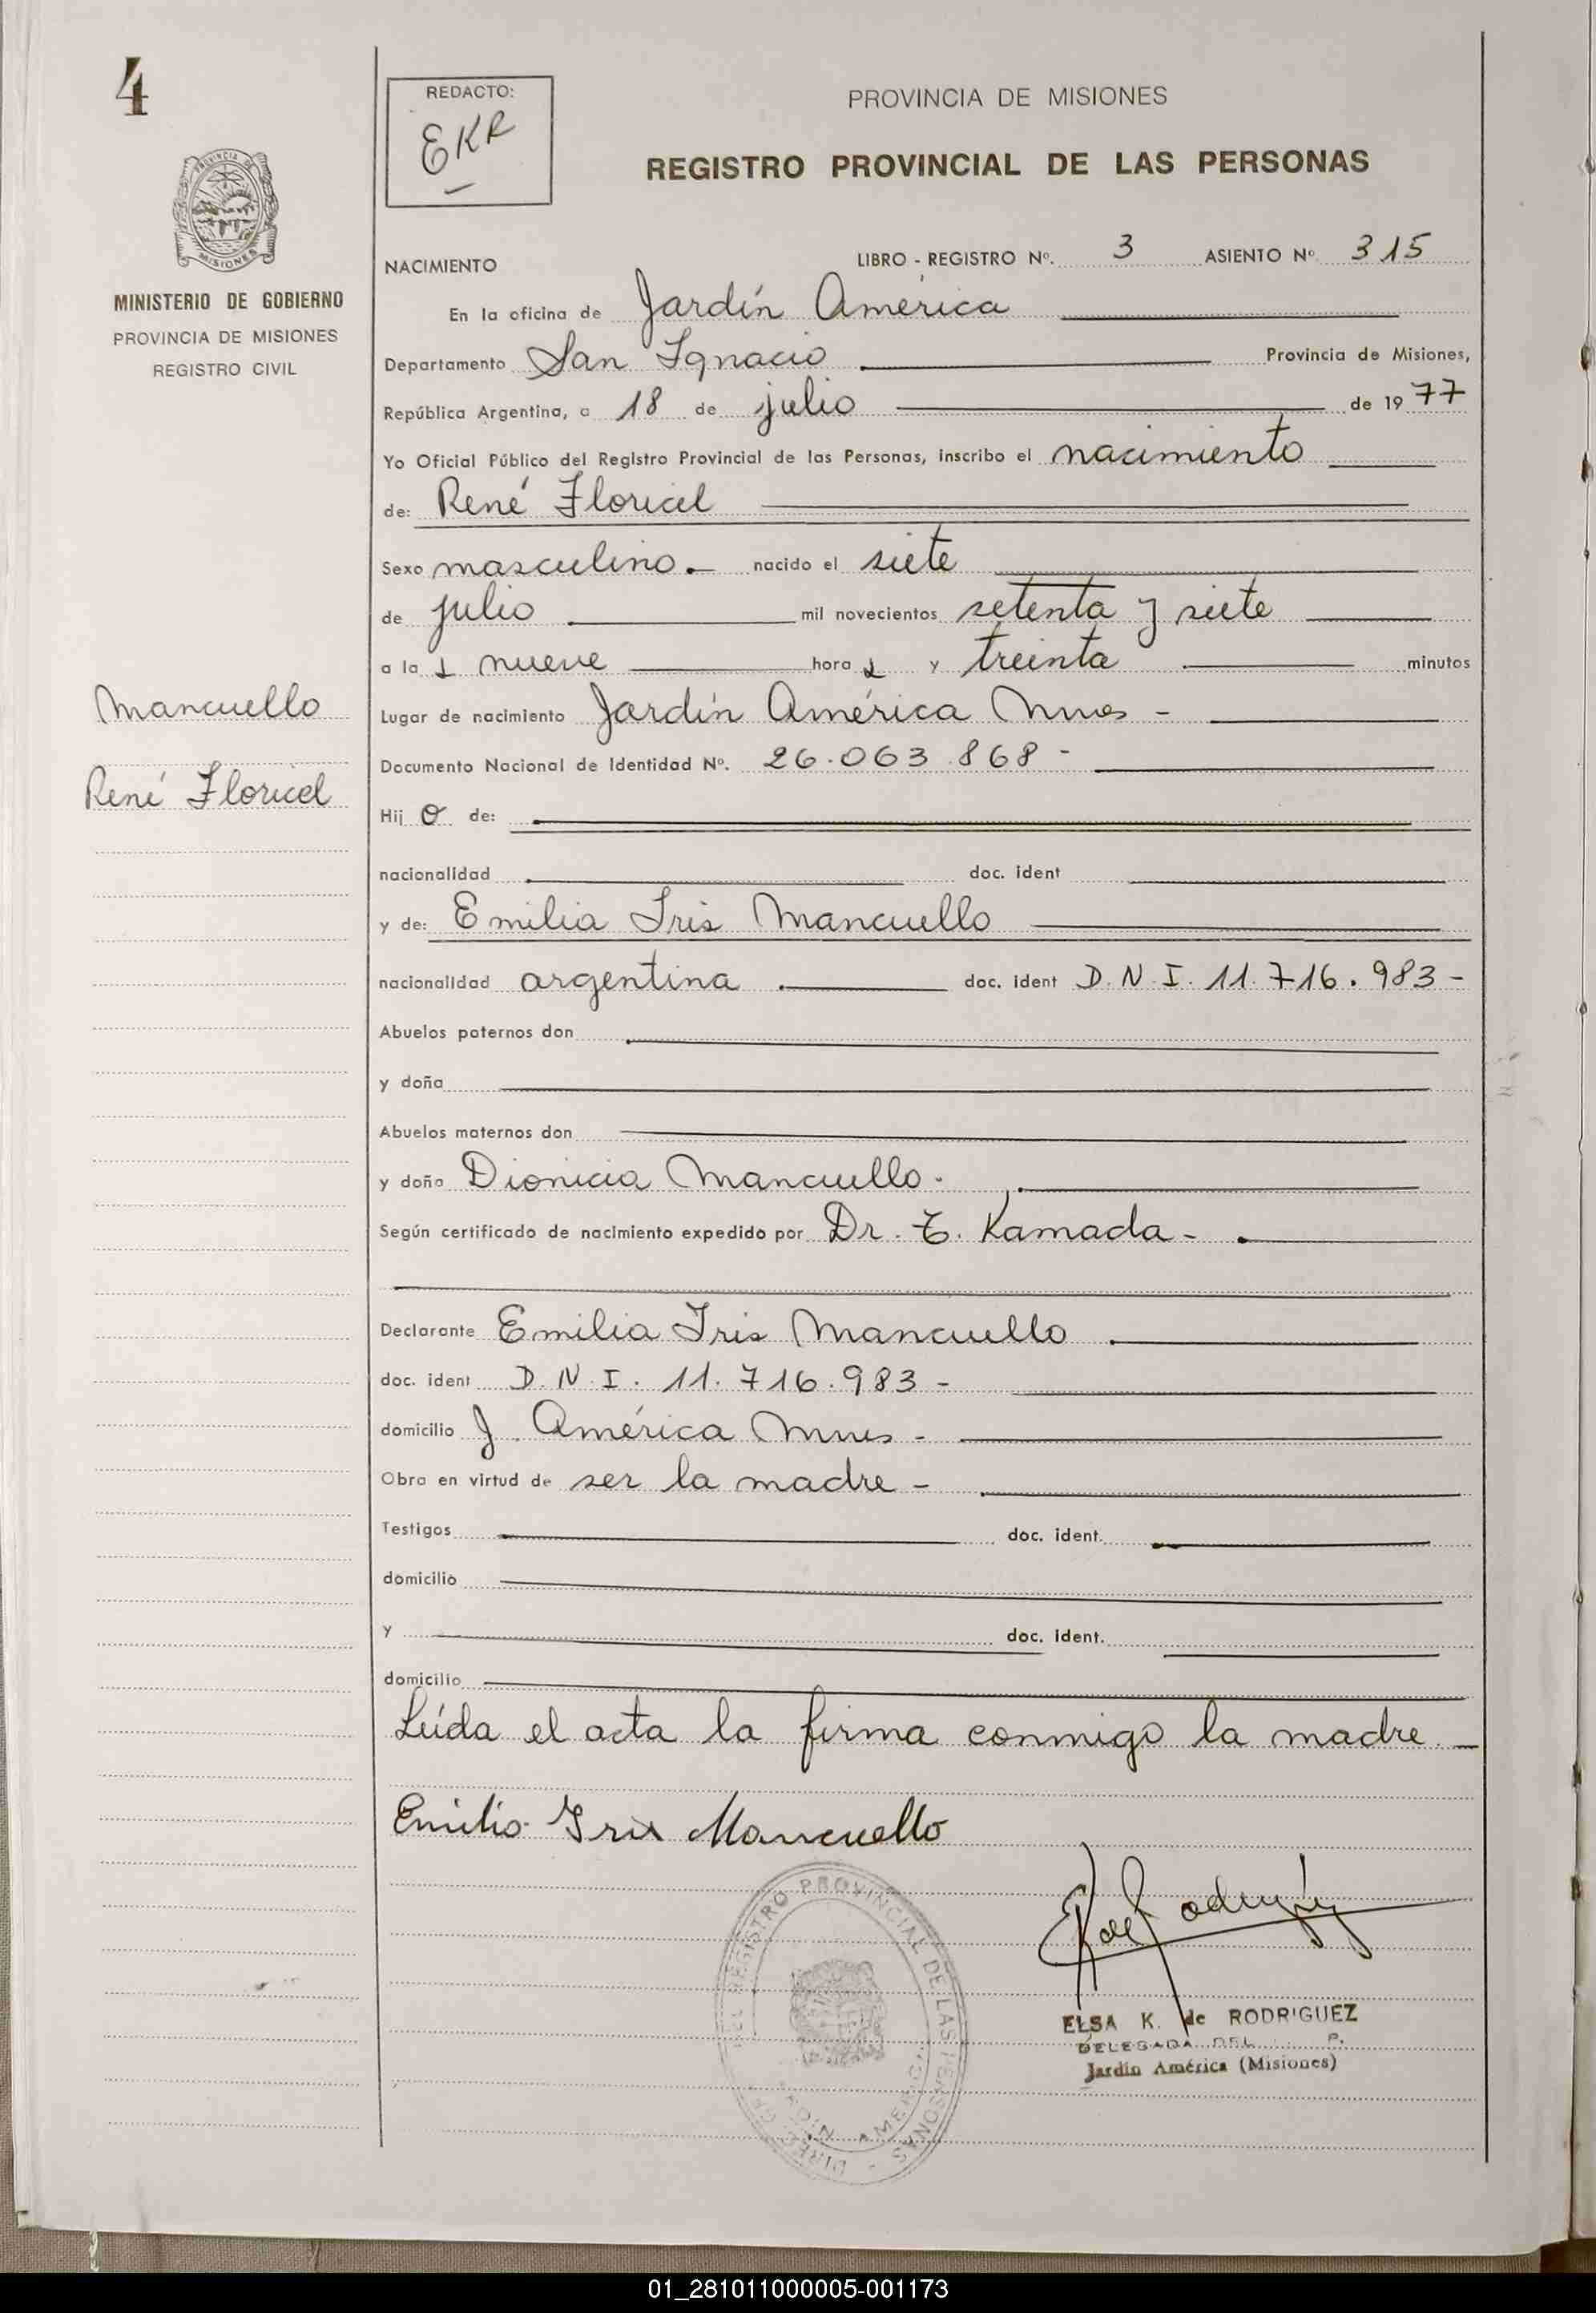 4
REDACTO:
EKR
PROVINCIA DE MISIONES
REGISTRO PROVINCIAL DE LAS PERSONAS
MINISTERIO DE GOBIERNO
PROVINCIA DE MISIONES
REGISTRO CIVIL
NACIMIENTO LIBRO - REGISTRO Nº. 3 ASIENTO Nº 315
En la oficina de Jardín América
Departamento San Ignacio Provincia de Misiones,
República Argentina, a 18 de julio de 1977
Yo Oficial Público del Registro Provincial de las Personas, inscribo el nacimiento
de: René Floricel
Sexo masculino.- nacido el siete
de julio mil novecientos setenta y siete
a la s nueve hora s y treinta minutos
Mancuello
Lugar de nacimiento Jardín América Mnes -
Documento Nacional de Identidad Nº. 26.063.868 -
René Floricel
Hij o de:
nacionalidad doc. ident
y de: Emilia Iris Mancuello
nacionalidad argentina doc. ident D.N.I. 11.716.983 -
Abuelos paternos don
y doña
Abuelos maternos don
y doña Dionicia Mancuello.
Según certificado de nacimiento expedido por Dr. T. Kamada -
Declarante Emilia Iris Mancuello
doc. ident D.N.I. 11.716.983 -
domicilio J. América Mnes -
Obra en virtud de ser la madre -
Testigos doc. ident.
domicilio
y doc. ident.
domicilio
Leída el acta la firma conmigo la madre. -
Emilia Iris Mancuello
MISIONES
REGISTRO PROVINCIAL DE LAS PERSONAS
ELSA K. de RODRIGUEZ
DELEGADA DEL P.
Jardín América (Misiones)
01_281011000005-001173